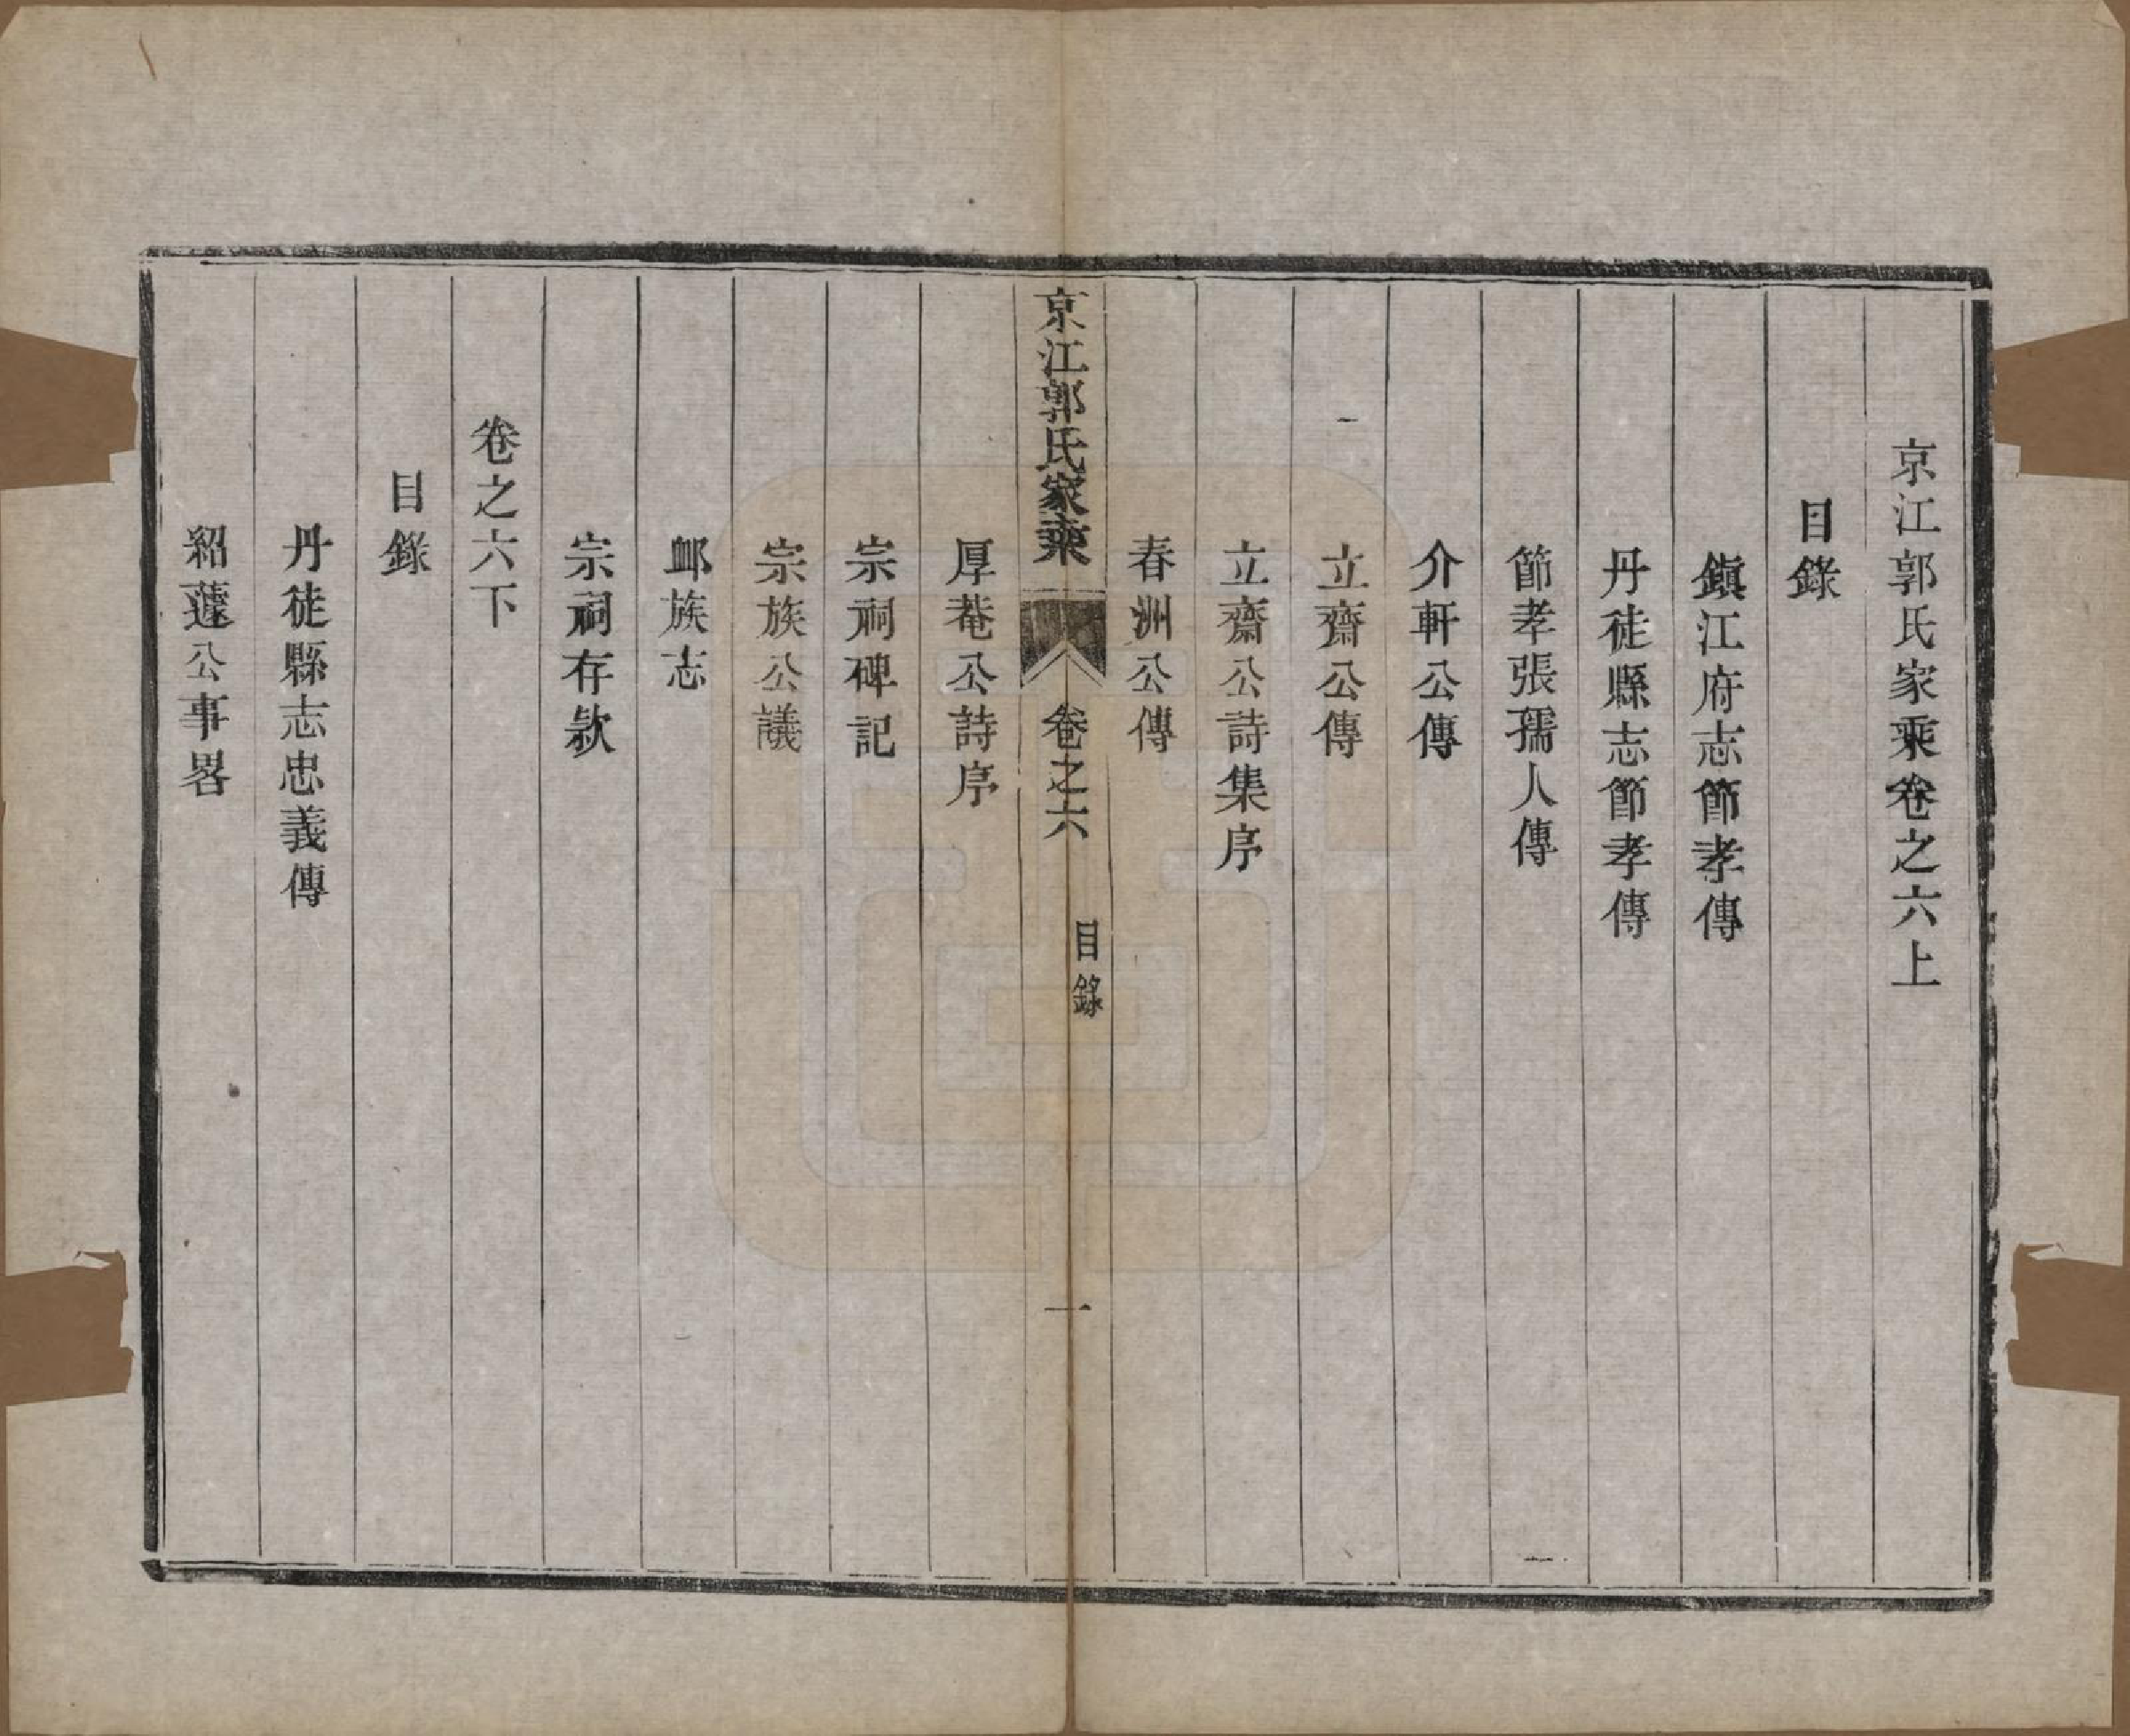 京江郭氏家乘卷之六上
目錄
鎭江府志節孝傳
丹徒縣志節孝傳
節孝張孺人傳
介軒公傳
立齋公傳
立齋公詩集序
春洲公傳
京江郭氏家乘
卷之六
目錄
一
厚菴公詩序
宗祠碑記
宗族公議
卹族志
宗祠存欵
卷之六下
目錄
丹徒縣志忠義傳
紹蘧公事畧